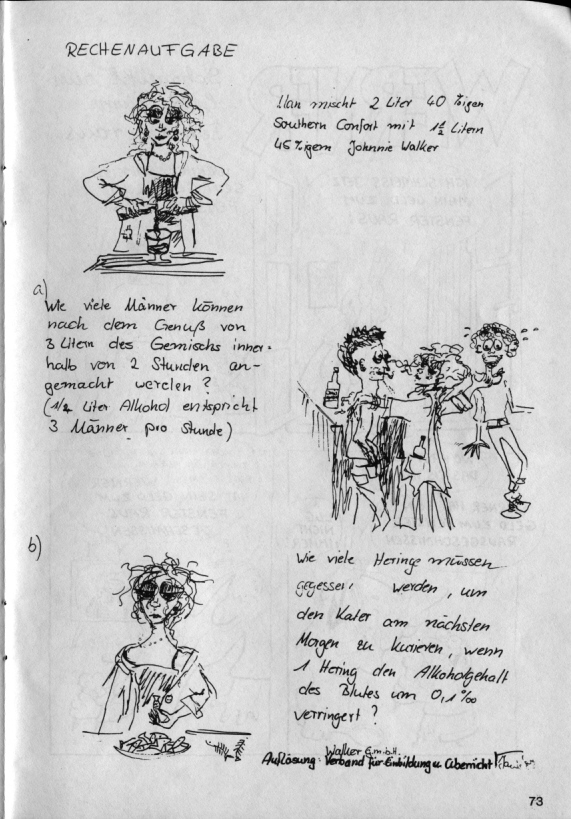 RECHENAUFGABE
Man mischt 2 Liter 40 %igen
Southern Confort mit 1 1/2 Litern
45 %igem Johnnie Walker
a)
Wie viele Männer können
nach dem Genuß von
3 Litern des Gemischs inner=
halb von 2 Stunden an-
gemacht werden?
(1/2 Liter Alkohol entspricht
3 Männer pro Stunde)
b)
Wie viele Heringe müssen
gegessen werden, um
den Kater am nächsten
Morgen zu kurieren, wenn
1 Hering den Alkoholgehalt
des Blutes um 0,1 ‰
verringert?
Walker G.m.b.H.
Auflösung: Verband für Einbildung u. Aberricht
73